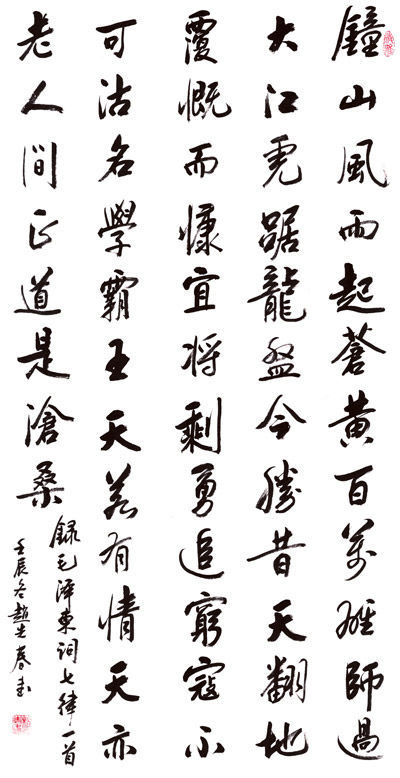 鐘山風雨起蒼黃百萬雄師過
大江虎踞龍盤今勝昔天翻地
覆慨而慷宜将剩勇追窮寇不
可沽名學霸王天若有情天亦
老人間正道是滄桑
録毛澤東詞七律一首
壬辰冬趙春書